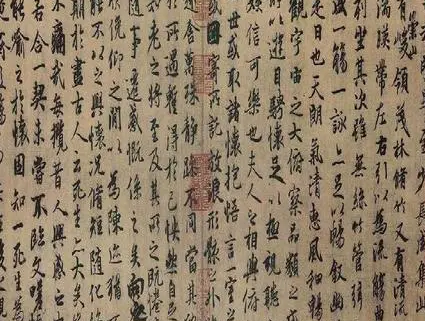 至少長咸集
崇山
有峻領茂林脩竹又有清流
湍暎帶左右引以為流觴曲
列坐其次雖無絲竹管弦
盛一觴一詠亦足以暢敘幽
是日也天朗氣清惠風和暢
觀宇宙之大俯察品類之
所以遊目騁懷足以極視聽
娛信可樂也夫人之相與俯
世或取諸懷抱悟言一室之
或因寄所託放浪形骸之外
趣舍萬殊靜躁不同當其
於所遇蹔得於己怏然自
知老之將至及其所之既惓
隨事遷感慨係之矣向之
欣俛仰之間以為陳迹猶
能不以之興懷況脩短隨化
期於盡古人云死生亦大矣
不痛哉每攬昔人興感之由
若合一契未嘗不臨文嗟
能喻之於懷固知一死生為